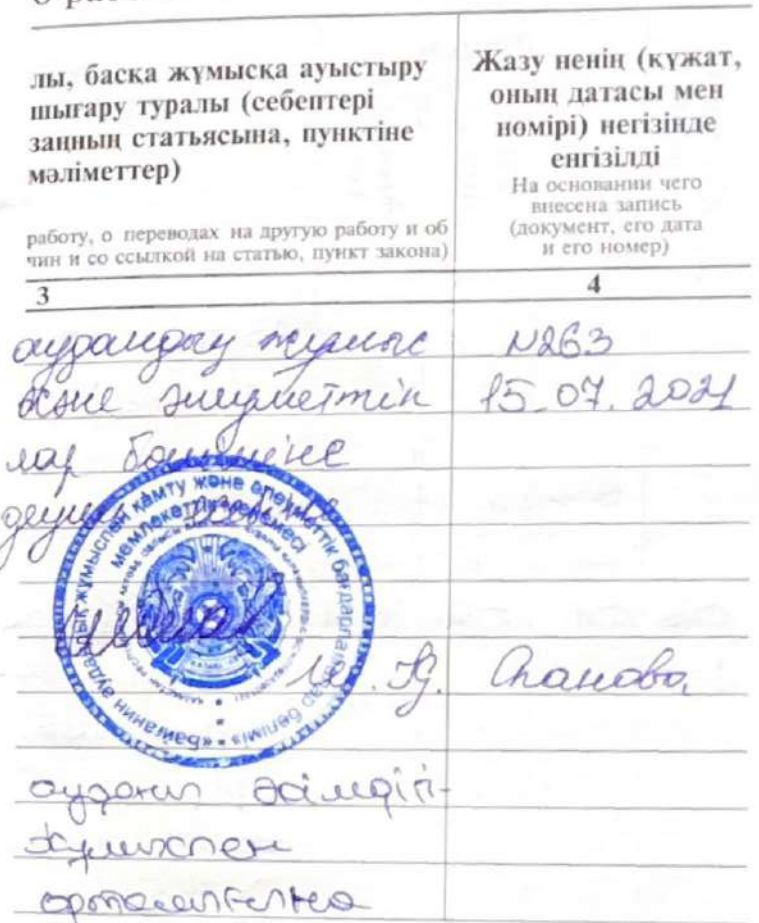 лы, басқа жұмысқа ауыстыру
шығару туралы (себептері
заңның статьясына, пунктіне
мәліметтер)
работу, о переводах на другую работу и об
чин и со ссылкой на статью, пункт закона)
Жазу ненің (құжат,
оның датасы мен
номірі) негізінде
енгізілді
На основании чего
внесена запись
(документ, его дата
и его номер)
3
4
аудандық жұмыс N263
және әлеуметтік 15.07.2021
лар бөліміне
жұмыспен қамту және әлеуметтік бағдарламалар бөлімі
мемлекеттік мекемесі
«Байганин аудандық
Спанова
аудан әкімдігі-
жұмыспен
орталығына